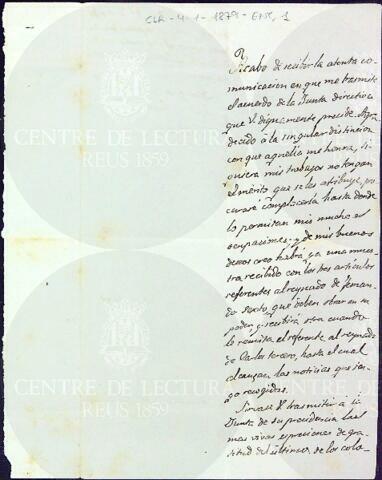 CLR-4-1-1879-ENT, 1
Acabo de recibir la atenta co-
municacion en que me trasmite
el acuerdo de la Junta directiva
que V. dignamente preside. Agra-
decido á la singular distincion
con que aquella me honra, si-
quiera mis trabajos no tengan
el mérito que se les atribuye, pro-
curaré complacerla hasta donde
lo permitan mis muchas
ocupaciones; y de mis buenos
deseos creo habrá ya una mues-
tra recibido con los tres artículos
referentes al reynado de Fernan-
do sexto, que deben obrar en su
poder, y recibirá otra cuando
le remita el referente al reynado
de Carlos tercero, hasta el cual
alcanzan las noticias que ten-
go recogidas.
Sírvase V. trasmitir á la
Junta de su presidencia las
mas vivas espresiones de gra-
titud del último de los cola-
CENTRE DE LECTURA
REUS 1859
CENTRE DE LECTURA
REUS 1859